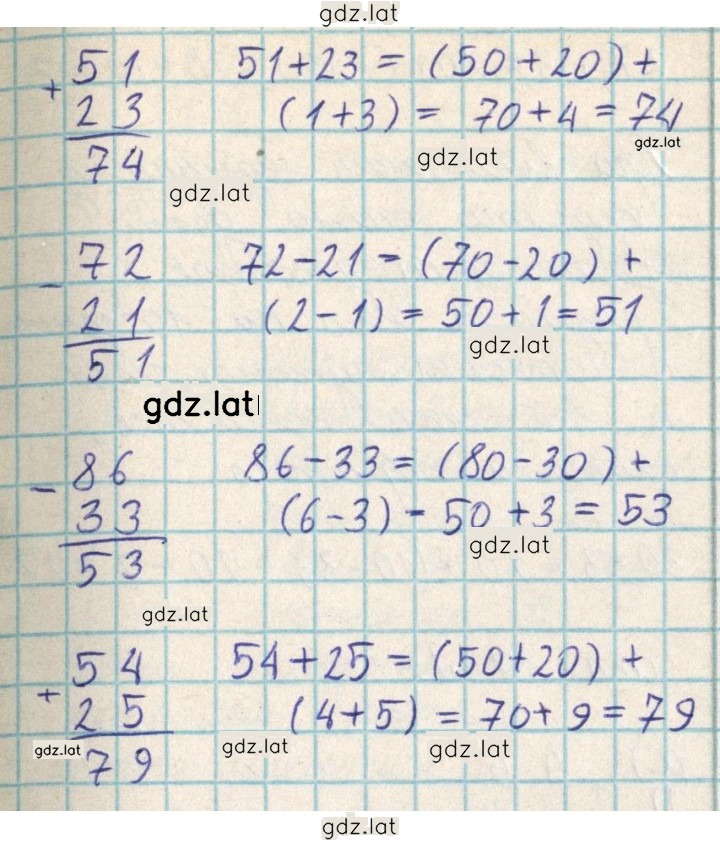 gdz.lat
+ 51
23
74
51+23 = (50+20)+
(1+3) = 70+4=74
gdz.lat
gdz.lat
gdz.lat
- 72
21
51
72-21 = (70-20) +
(2-1) = 50+1=51
gdz.lat
gdz.lat
- 86
33
53
86-33 = (80-30)+
(6-3) = 50+3=53
gdz.lat
gdz.lat
+ 54
25
79
54+25 = (50+20) +
(4+5) = 70+9=79
gdz.lat
gdz.lat
gdz.lat
gdz.lat